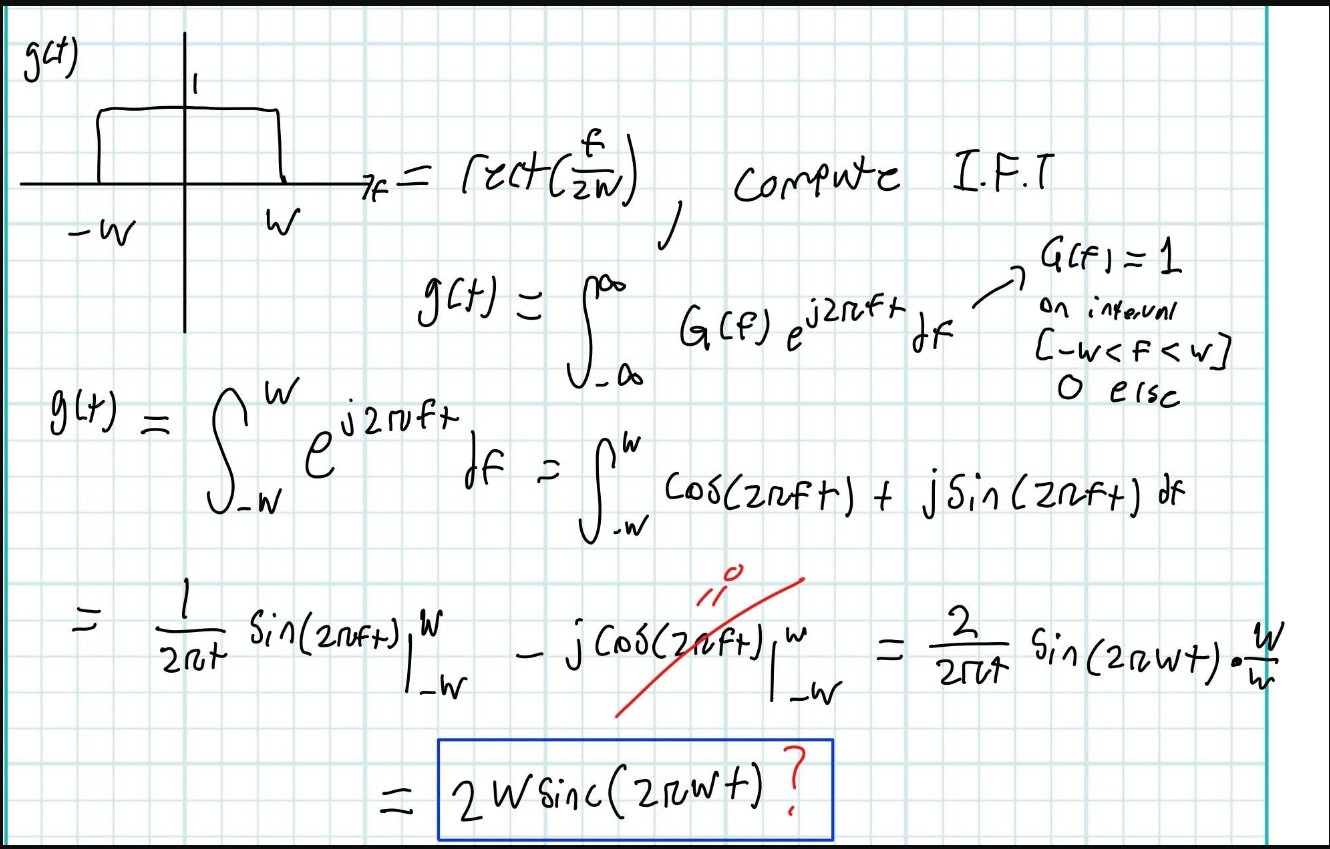 g(t)
1
-W W
f = rect(f/2W), compute I.F.T
g(t) = ∫_{-∞}^{∞} G(f) e^{j2πft} df → G(f) = 1
on interval
[-W < f < W]
0 else
g(t) = ∫_{-W}^{W} e^{j2πft} df = ∫_{-W}^{W} cos(2πft) + j sin(2πft) df
= 1/(2πt) sin(2πft) |_{-W}^{W} - j cos(2πft) |_{-W}^{W} = 2/(2πt) sin(2πWt) · W/W
= 0
= 2W sinc(2πWt) ?